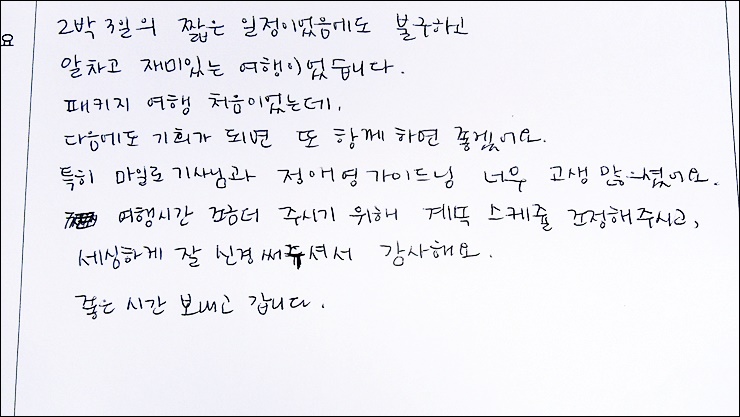 요
2박 3일의 짧은 일정이었음에도 불구하고
알차고 재미있는 여행이었습니다.
패키지 여행 처음이었는데,
다음에도 기회가 되면 또 함께 하면 좋겠어요.
특히 마일로기사님과 정애영가이드님 너무 고생 많으셨어요.
여행시간 조금더 주시기 위해 계쏙 스케쥴 조정해주시고,
세심하게 잘 신경써주셔서 감사해요.
좋은 시간 보내고 갑니다.